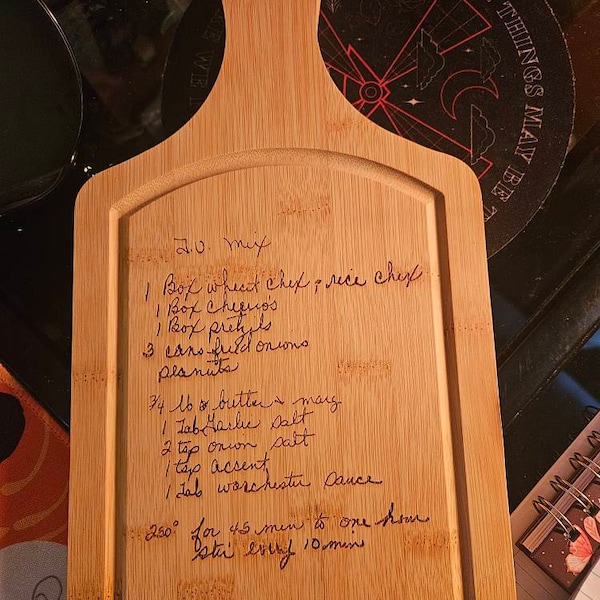 THINGS MAY BE
WE
T.V. mix
1 Box wheat chex & rice chex
1 Box cheerios
1 Box pretzils
3 cans fried onions
peanuts
3/4 lb butter & marg
1 Tab Garlic salt
2 tsp onion salt
1 tsp accent
1 Tab worchester sauce
250° for 45 min to one hour
stir every 10 min